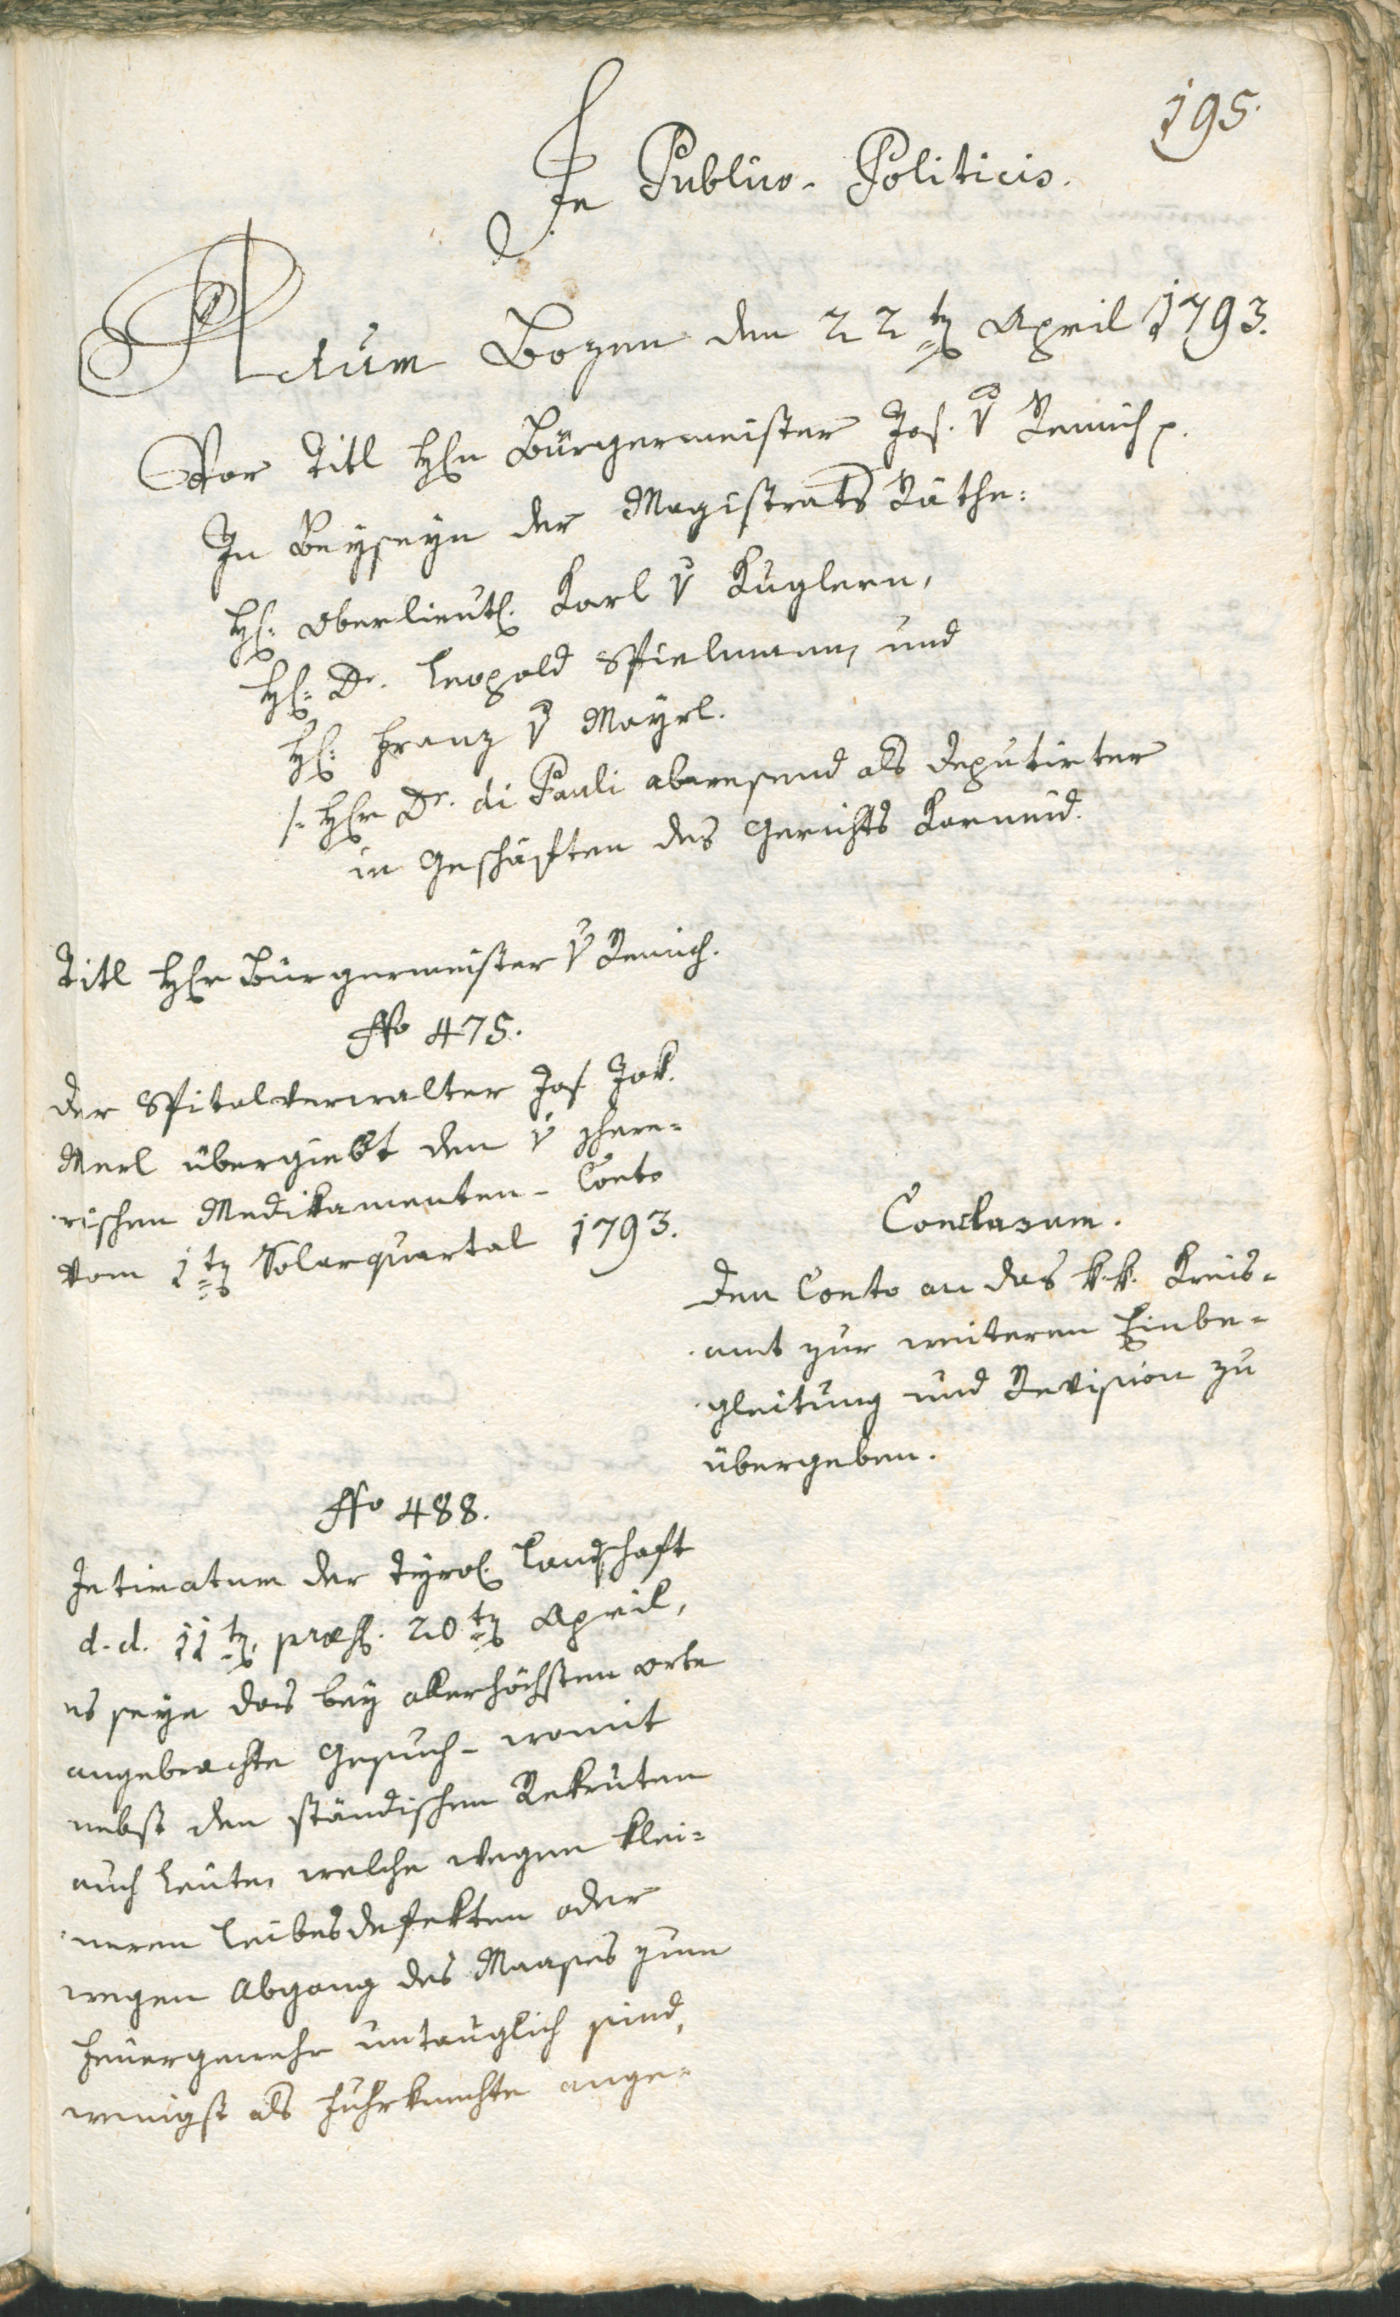 195.
In Publico-Politicis.
Actum Bozen den 22t April 1793.
Vor Titl Hrn Bürgermeister Jos. v Remich p.
In Beyseyn der Magistrats Räthe:
H: Oberlieut. Karl v Kuglern,
H: Dr. Leopold Spielmann, und
H: Franz v Mayrl.
/: Hr Dr. di Pauli abwesend als Deputirter
in Geschäften des Gerichts Karneid.
Titl Hr Bürgermeister v Remich.
No 475.
Der Spitalverwalter Jos. Jak.
Merl übergiebt den v
rischen Medikamenten-Conto
vom 1t Solarquartal 1793.
Conclusum.
Den Conto an das k.k. Kreis-
amt zur weiteren Einbe-
gleitung und Revision zu
übergeben.
No 488.
Intimatum der Tyrol. Landschaft
d.d. 11t, præs. 20t April,
es seye das bey allerhöchsten Orte
angebrachte Gesuch - womit
nebst den ständischen Rekruten
auch Leute, welche wegen klei-
neren Leibesdefekten oder
wegen Abgang des Maases zum
Feuergewehr untauglich sind,
wenigst als Fuhrknechte ange-